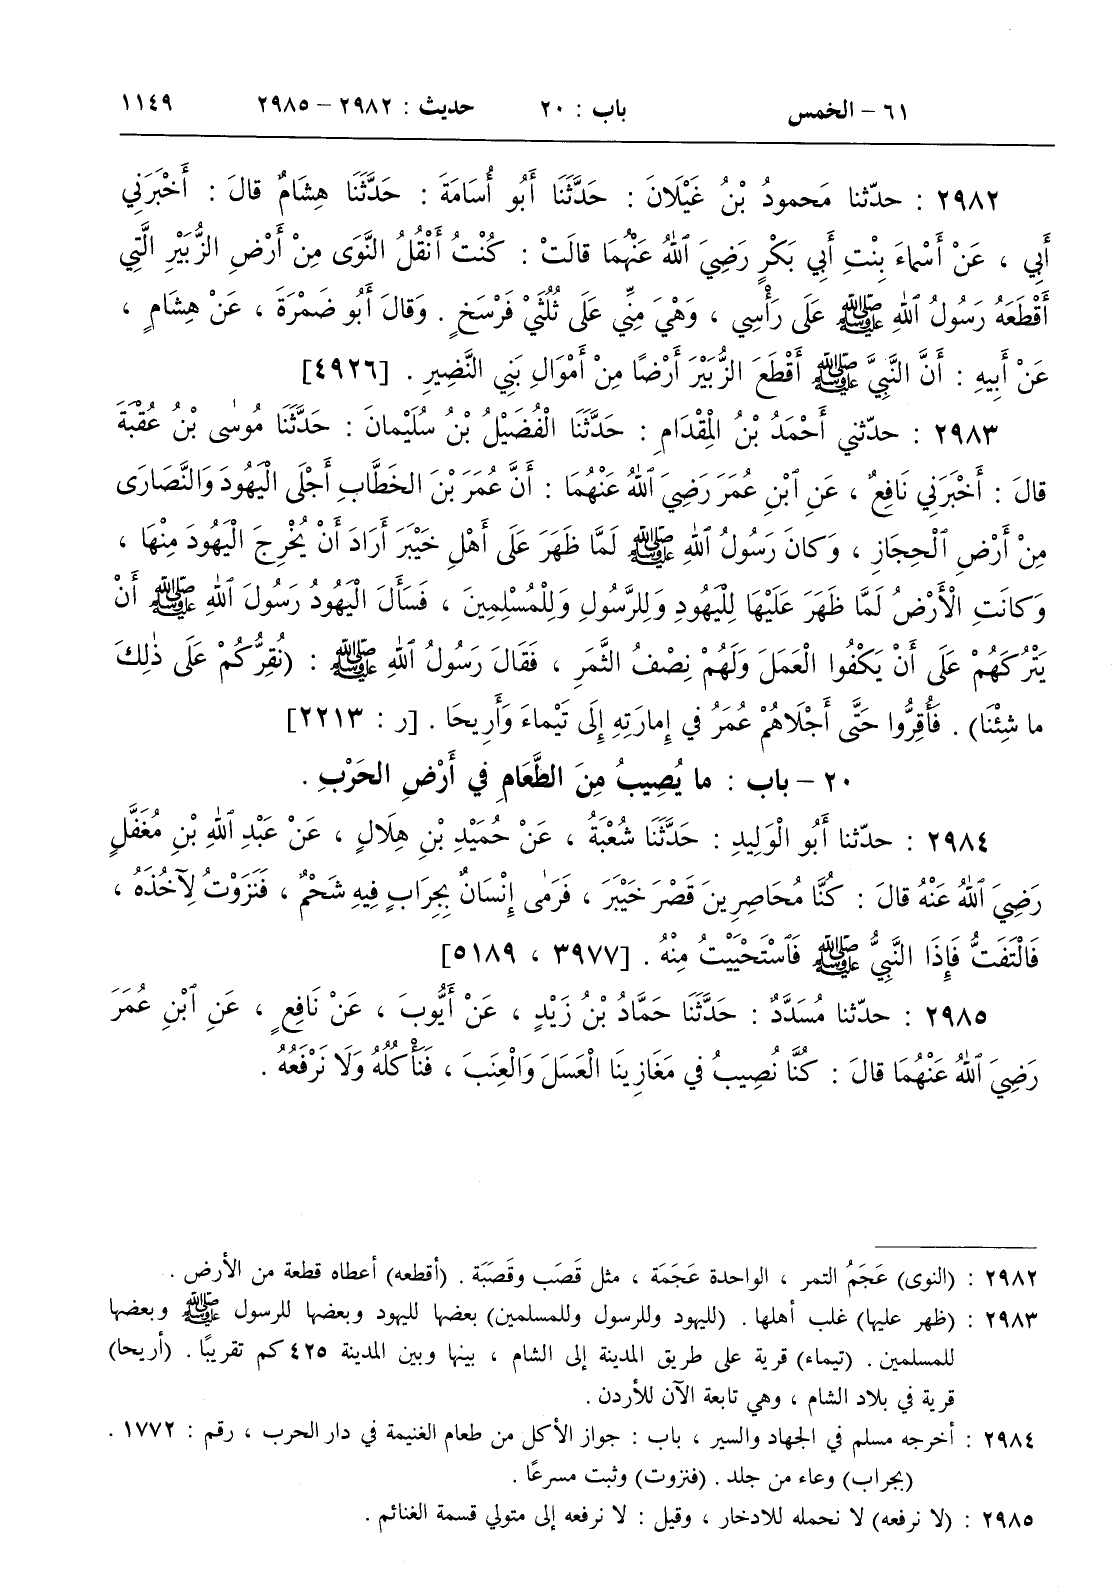 ٦١ – الخمس باب : ٢٠ حديث : ٢٩٨٢ – ٢٩٨٥ ١١٤٩
٢٩٨٢ : حدّثنا مَحمودُ بْنُ غَيْلَانَ : حَدَّثَنَا أَبُو أُسَامَةَ : حَدَّثَنَا هِشَامٌ قالَ : أَخْبَرَنِي
أَبِي ، عَنْ أَسْمَاءَ بِنْتِ أَبِي بَكْرٍ رَضِيَ ٱللهُ عَنْهُمَا قالَتْ : كُنْتُ أَنْقُلُ النَّوَى مِنْ أَرْضِ الزُّبَيْرِ الَّتِي
أَقْطَعَهُ رَسُولُ ٱللهِ ﷺ عَلَى رَأْسِي ، وَهْيَ مِنِّي عَلَى ثُلُثَيْ فَرْسَخٍ . وَقالَ أَبُو ضَمْرَةَ ، عَنْ هِشَامٍ ،
عَنْ أَبِيهِ : أَنَّ النَّبِيَّ ﷺ أَقْطَعَ الزُّبَيْرَ أَرْضًا مِنْ أَمْوَالِ بَنِي النَّضِيرِ . [٤٩٢٦]
٢٩٨٣ : حدّثني أَحْمَدُ بْنُ الْمِقْدَامِ : حَدَّثَنَا الْفُضَيْلُ بْنُ سُلَيْمانَ : حَدَّثَنَا مُوسٰى بْنُ عُقْبَةَ
قالَ : أَخْبَرَنِي نَافِعٌ ، عَنِ ٱبْنِ عُمَرَ رَضِيَ ٱللهُ عَنْهُمَا : أَنَّ عُمَرَ بْنَ الخَطَّابِ أَجْلَى الْيَهُودَ وَالنَّصَارَى
مِنْ أَرْضِ الْحِجَازِ ، وَكانَ رَسُولُ ٱللهِ ﷺ لَمَّا ظَهَرَ عَلَى أَهْلِ خَيْبَرَ أَرَادَ أَنْ يُخْرِجَ الْيَهُودَ مِنْهَا ،
وَكانَتِ الْأَرْضُ لَمَّا ظَهَرَ عَلَيْهَا لِلْيَهُودِ وَلِلرَّسُولِ وَلِلْمُسْلِمِينَ ، فَسَأَلَ الْيَهُودُ رَسُولَ ٱللهِ ﷺ أَنْ
يَتْرُكَهُمْ عَلَى أَنْ يَكْفُوا الْعَمَلَ وَلَهُمْ نِصْفُ الثَّمَرِ ، فَقَالَ رَسُولُ ٱللهِ ﷺ : (نُقِرُّكُمْ عَلَى ذٰلِكَ
ما شِئْنَا) . فَأُقِرُّوا حَتَّى أَجْلَاهُمْ عُمَرُ في إِمارَتِهِ إِلَى تَيْماءَ وَأَرِيحَا . [ر : ٢٢١٣]
٢٠ – باب : ما يُصِيبُ مِنَ الطَّعَامِ فِي أَرْضِ الحَرْبِ .
٢٩٨٤ : حدّثنا أَبُو الْوَلِيدِ : حَدَّثَنَا شُعْبَةُ ، عَنْ حُمَيْدِ بْنِ هِلَالٍ ، عَنْ عَبْدِ ٱللهِ بْنِ مُغَفَّلٍ
رَضِيَ ٱللهُ عَنْهُ قالَ : كُنَّا مُحَاصِرِينَ قَصْرَ خَيْبَرَ ، فَرَمٰى إِنْسَانٌ بِجِرَابٍ فِيهِ شَحْمٌ ، فَنَزَوْتُ لِآخُذَهُ ،
فَالْتَفَتُّ فَإِذَا النَّبِيُّ ﷺ فَٱسْتَحْيَيْتُ مِنْهُ . [٣٩٧٧ ، ٥١٨٩]
٢٩٨٥ : حدّثنا مُسَدَّدٌ : حَدَّثَنَا حَمَّادُ بْنُ زَيْدٍ ، عَنْ أَيُّوبَ ، عَنْ نَافِعٍ ، عَنِ ٱبْنِ عُمَرَ
رَضِيَ ٱللهُ عَنْهُمَا قالَ : كُنَّا نُصِيبُ فِي مَغَازِينَا الْعَسَلَ وَالْعِنَبَ ، فَنَأْكُلُهُ وَلَا نَرْفَعُهُ .
٢٩٨٢ : (النوى) عَجَمُ التمر ، الواحدة عَجَمَة ، مثل قَصَب وقَصَبَة . (أقطعه) أعطاه قطعة من الأرض .
٢٩٨٣ : (ظهر عليها) غلب أهلها . (لليهود وللرسول وللمسلمين) بعضها لليهود وبعضها للرسول ﷺ وبعضها
للمسلمين . (تيماء) قرية على طريق المدينة إلى الشام ، بينها وبين المدينة ٤٢٥ كم تقريبًا . (أريحا)
قرية في بلاد الشام ، وهي تابعة الآن للأردن .
٢٩٨٤ : أخرجه مسلم في الجهاد والسير ، باب : جواز الأكل من طعام الغنيمة في دار الحرب ، رقم : ١٧٧٢ .
(بجراب) وعاء من جلد . (فنزوت) وثبت مسرعًا .
٢٩٨٥ : (لا نرفعه) لا نحمله للادخار ، وقيل : لا نرفعه إلى متولي قسمة الغنائم .